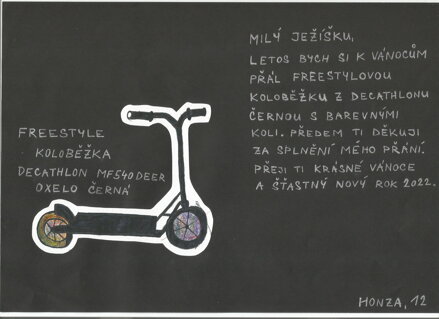 MILÝ JEŽÍŠKU,
LETOS BYCH SI K VÁNOCŮM
PŘÁL FREESTYLOVOU
KOLOBĚŽKU Z DECATHLONU
ČERNOU S BAREVNÝMI
KOLI. PŘEDEM TI DĚKUJI
ZA SPLNĚNÍ MÉHO PŘÁNÍ.
PŘEJI TI KRÁSNÉ VÁNOCE
A ŠŤASTNÝ NOVÝ ROK 2022.
FREESTYLE
KOLOBĚŽKA
DECATHLON MF540DEER
OXELO ČERNÁ
HONZA, 12